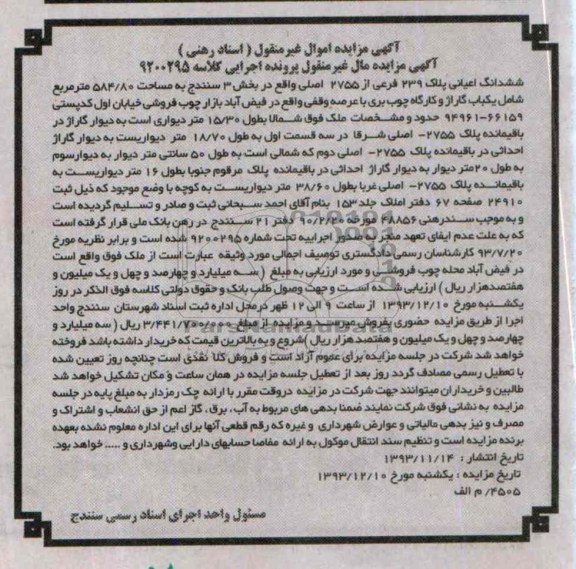 آگهی مزایده اموال غیرمنقول ( اسناد رهنی )
آگهی مزایده مال غیرمنقول پرونده اجرایی کلاسه ۹۲۰۰۲۹۵
ششدانگ اعیانی پلاک ۲۳۹ فرعی از ۲۷۵۵ اصلی واقع در بخش ۳ سنندج به مساحت ۵۸۴/۸۰ مترمربع
شامل یکباب گاراژ و کارگاه چوب بری با عرصه وقفی واقع در فیض آباد بازار چوب فروشی خیابان اول کدپستی
۶۶۱۵۹-۹۴۹۶۱ حدود و مشخصات ملک فوق شمالا بطول ۱۵/۳۰ متر دیواری است به دیوار گاراژ در
باقیمانده پلاک ۲۷۵۵- اصلی شرقا در سه قسمت اول به طول ۱۸/۷۰ متر دیواریست به دیوار گاراژ
احداثی در باقیمانده پلاک ۲۷۵۵- اصلی دوم که شمالی است به طول ۵۰ سانتی متر دیوار به دیوارسوم
به طول ۲۰متر دیوار به دیوار گاراژ احداثی در باقیمانده پلاک مرقوم جنوبا بطول ۱۶ متر دیواریست به
باقیمانده پلاک ۲۷۵۵- اصلی غربا بطول ۳۸/۶۰ متر دیواریست به کوچه با وضع موجود که ذیل ثبت
۲۴۹۱۰ صفحه ۶۷ دفتر املاک جلد ۱۵۳ بنام آقای احمد سبحانی ثبت و صادر و تسلیم گردیده است
و به موجب سندرهنی ۴۸۸۵۶ مورخه ۹۰/۲/۵ دفتر ۲۱ سنندج در رهن بانک ملی قرار گرفته است
که به علت عدم ایفای تعهد منجر به صدور اجراییه تحت شماره ۹۲۰۰۲۹۵ شده است و برابر نظریه مورخ
۹۳/۷/۲۰ کارشناسان رسمی دادگستری توصیف اجمالی مورد وثیقه عبارت است از ملک فوق واقع است
در فیض آباد محله چوب فروشی و مورد ارزیابی به مبلغ ( سه میلیارد و چهارصد و چهل و یک میلیون و
هفتصدهزار ریال ) ارزیابی شده است و جهت وصول طلب بانک و حقوق دولتی کلاسه فوق الذکر در روز
یکشنبه مورخ ۱۳۹۳/۱۲/۱۰ از ساعت ۹ الی ۱۲ ظهر درمحل اداره ثبت اسناد شهرستان سنندج واحد
اجرا از طریق مزایده حضوری بفروش میرسد و مزایده از مبلغ ۳/۴۴۱/۷۰۰/۰۰۰ ریال ( سه میلیارد و
چهارصد و چهل و یک میلیون و هفتصد هزار ریال )شروع و به بالاترین قیمت که خریدار داشته باشد فروخته
خواهد شد شرکت در جلسه مزایده برای عموم آزاد است و فروش کلا نقدی است چنانچه روز تعیین شده
با تعطیل رسمی مصادف گردد روز بعد از تعطیل جلسه مزایده در همان ساعت و مکان تشکیل خواهد شد
طالبین و خریداران میتوانند جهت شرکت در مزایده دروقت مقرر با ارائه چک رمزدار به مبلغ پایه در جلسه
مزایده به نشانی فوق شرکت نمایند ضمنا بدهی های مربوط به آب ، برق ، گاز اعم از حق انشعاب و اشتراک و
مصرف و نیز بدهی مالیاتی و عوارض شهرداری و غیره که رقم قطعی آنها برای این اداره معلوم نشده بعهده
برنده مزایده است و تنظیم سند انتقال موکول به ارائه مفاصا حسابهای دارایی وشهرداری و ..... خواهد بود.
تاریخ انتشار : ۱۳۹۳/۱۱/۱۴
تاریخ مزایده : یکشنبه مورخ ۱۳۹۳/۱۲/۱۰
۴۵۰۵/ م الف
مسئول واحد اجرای اسناد رسمی سنندج